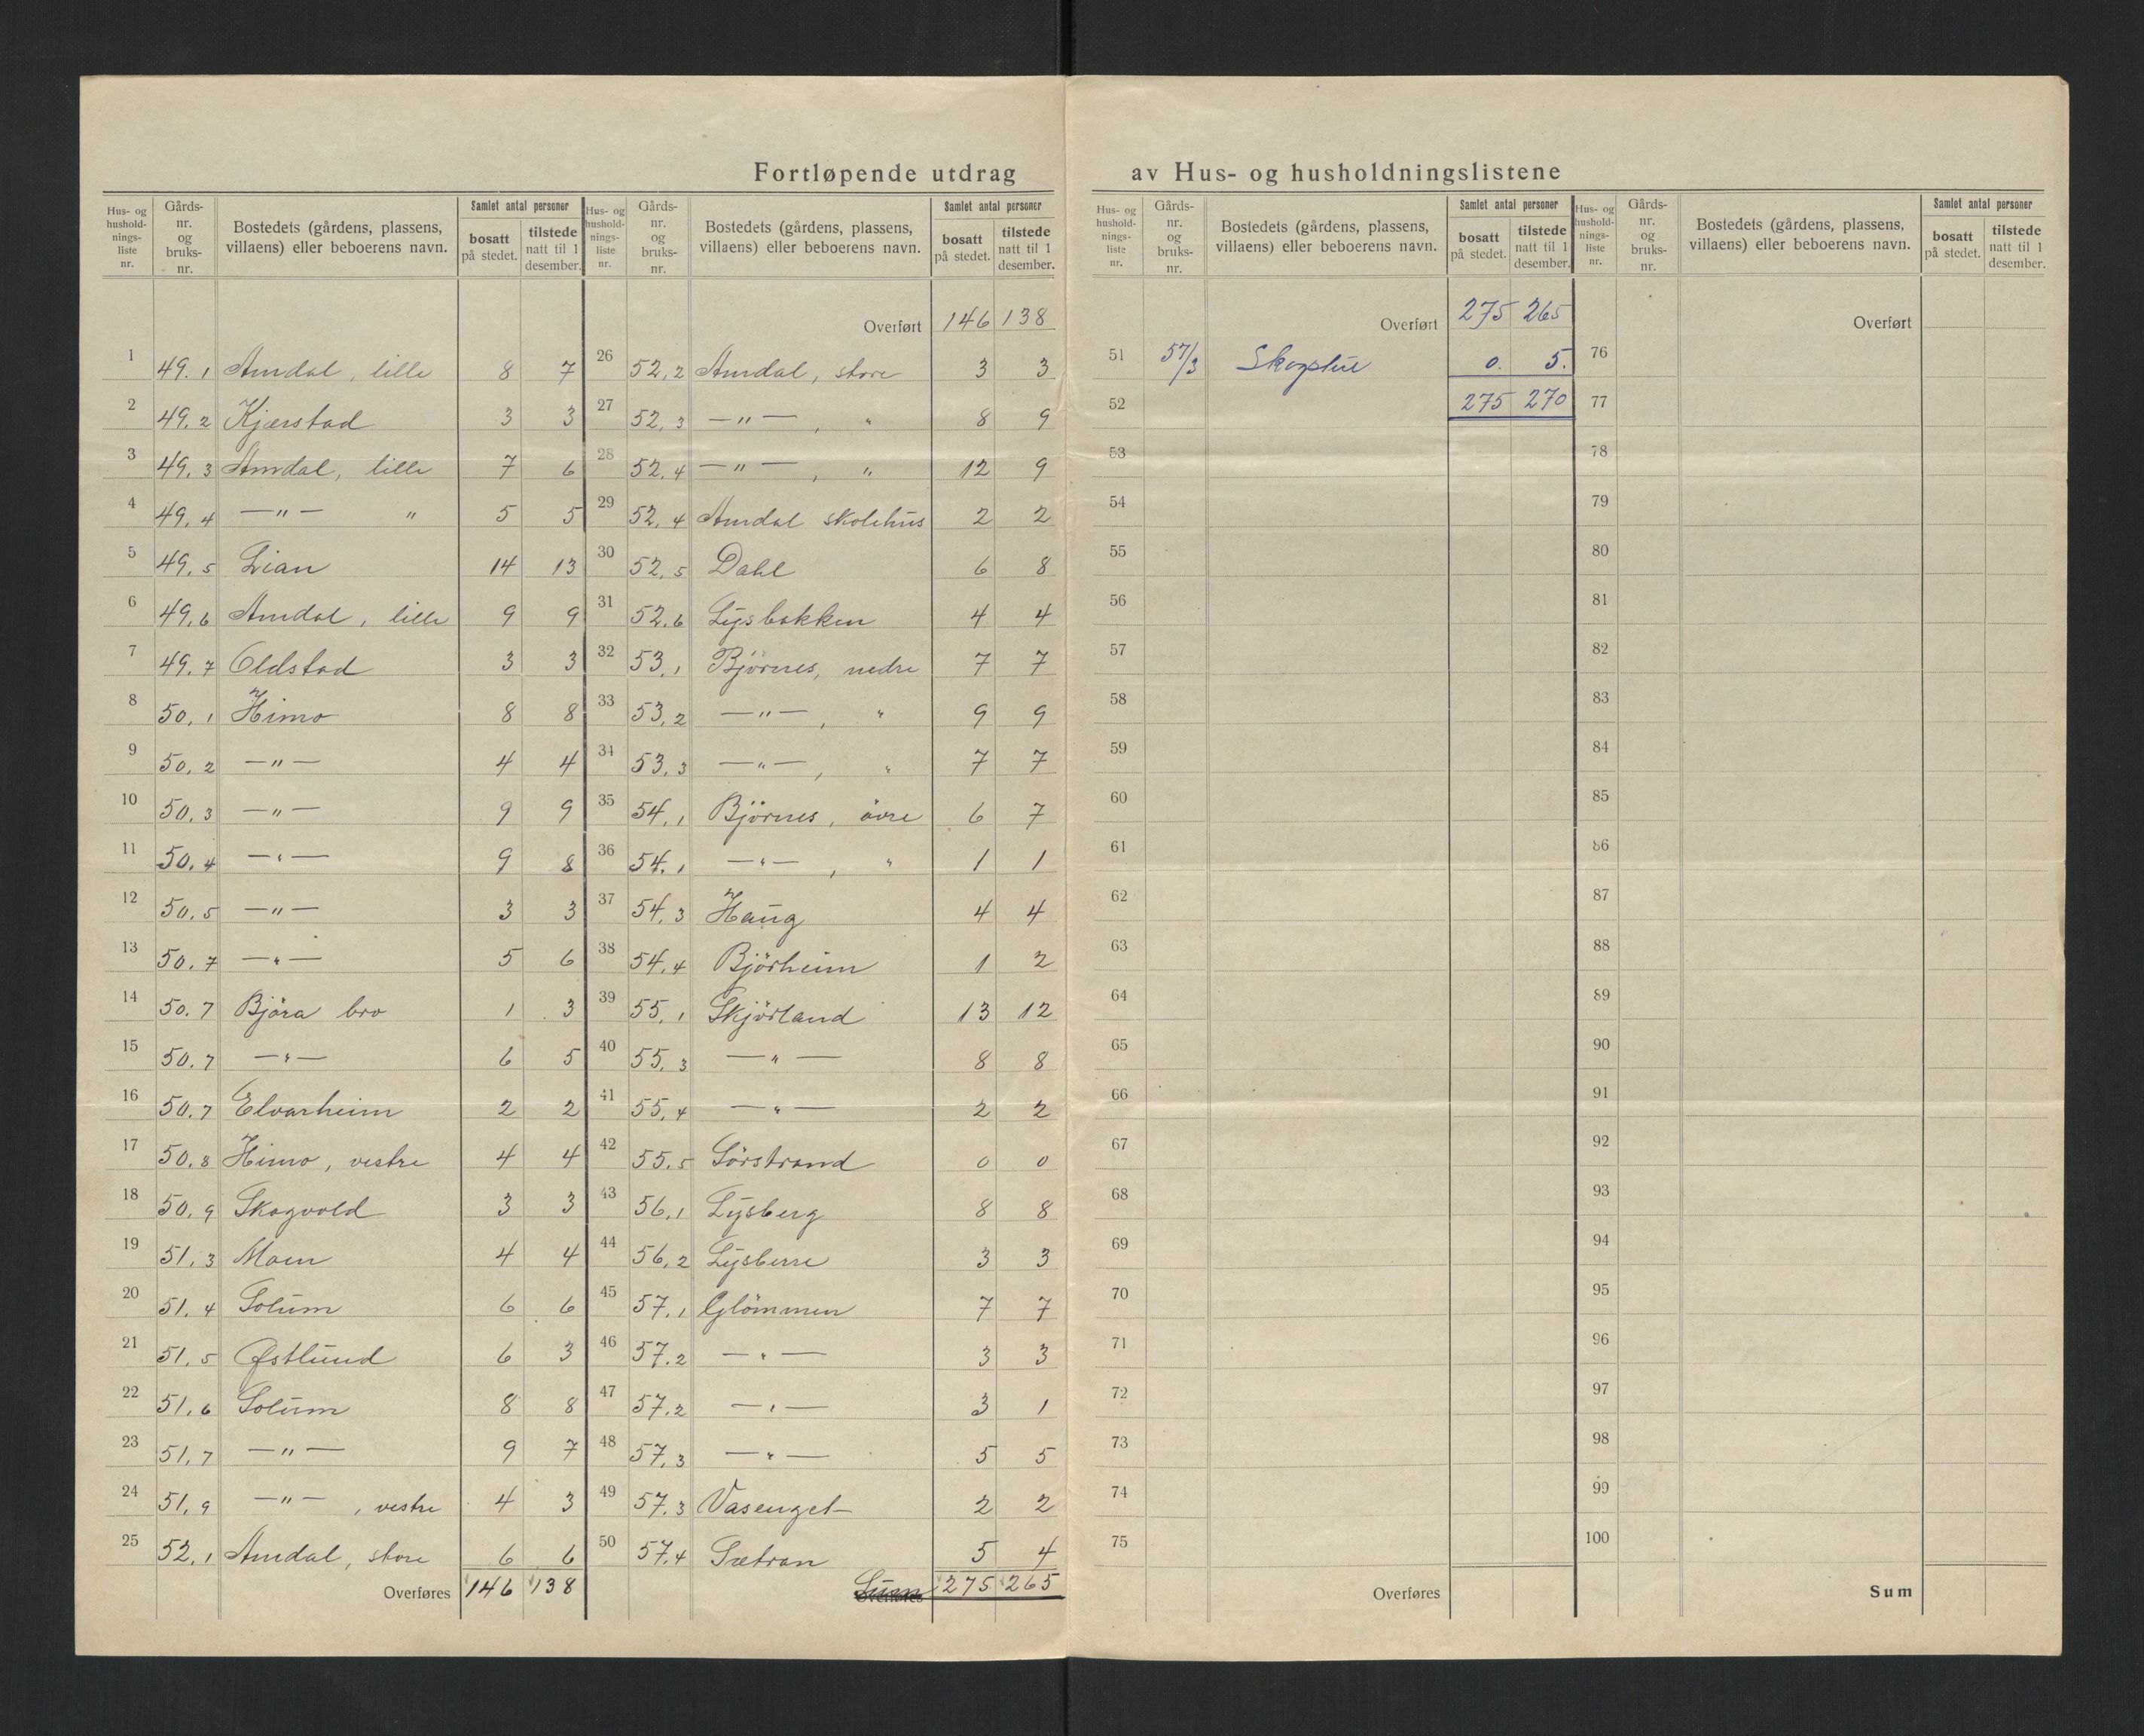 Fortløpende utdrag av Hus- og husholdningslistene
Hus- og hushold- nings- liste nr. Gårds- nr. og bruks- nr. Bostedets (gårdens, plassens, villaens) eller beboerens navn. Samlet antal personer bosatt på stedet. tilstede natt til 1 desember.
1 49.1 Amdal, lille 8 7
2 49.2 Kjærstad 3 3
3 49.3 Amdal, lille 7 6
4 49.4 —"— " 5 5
5 49.5 Lian 14 13
6 49.6 Amdal, lille 9 9
7 49.7 Oldstad 3 3
8 50.1 Himo 8 8
9 50.2 —"— 4 4
10 50.3 —"— 9 9
11 50.4 —"— 9 8
12 50.5 —"— 3 3
13 50.7 —"— 5 6
14 50.7 Björa bro 1 3
15 50.7 —"— 6 5
16 50.7 Elvarheim 2 2
17 50.8 Himo, vestre 4 4
18 50.9 Skogvold 3 3
19 51.3 Moen 4 4
20 51.4 Solum 6 6
21 51.5 Østlund 6 3
22 51.6 Solum 8 8
23 51.7 —"— 9 7
24 51.9 —"—, vestre 4 3
25 52.1 Amdal, store 6 6
Overføres 146 138
Hus- og hushold- nings- liste nr. Gårds- nr. og bruks- nr. Bostedets (gårdens, plassens, villaens) eller beboerens navn. Samlet antal personer bosatt på stedet. tilstede natt til 1 desember.
Overført 146 138
26 52.2 Amdal, store 3 3
27 52.3 —"—, " 8 9
28 52.4 —"—, " 12 9
29 52.4 Amdal skolehus 2 2
30 52.5 Dahl 6 8
31 52.6 Lysbakken 4 4
32 53.1 Björnes, nedre 7 7
33 53.2 —"—, " 9 9
34 53.3 —"—, " 7 7
35 54.1 Björnes, övre 6 7
36 54.1 —"—, " 1 1
37 54.3 Haug 4 4
38 54.4 Björheim 1 2
39 55.1 Skjörland 13 12
40 55.3 —"— 8 8
41 55.4 —"— 2 2
42 55.5 Sörstrand 0 0
43 56.1 Lysberg 8 8
44 56.2 Lysberre 3 3
45 57.1 Glömmen 7 7
46 57.2 —"— 3 3
47 57.2 —"— 3 1
48 57.3 —"— 5 5
49 57.3 Vasenget 2 2
50 57.4 Sætran 5 4
Overføres Sum 275 265
Hus- og hushold- nings- liste nr. Gårds- nr. og bruks- nr. Bostedets (gårdens, plassens, villaens) eller beboerens navn. Samlet antal personer bosatt på stedet. tilstede natt til 1 desember.
Overført 275 265
51 57/3 Skogstue 0. 5.
52 275 270
53
54
55
56
57
58
59
60
61
62
63
64
65
66
67
68
69
70
71
72
73
74
75
Overføres
Hus- og hushold- nings- liste nr. Gårds- nr. og bruks- nr. Bostedets (gårdens, plassens, villaens) eller beboerens navn. Samlet antal personer bosatt på stedet. tilstede natt til 1 desember.
Overført
76
77
78
79
80
81
82
83
84
85
86
87
88
89
90
91
92
93
94
95
96
97
98
99
100
Sum